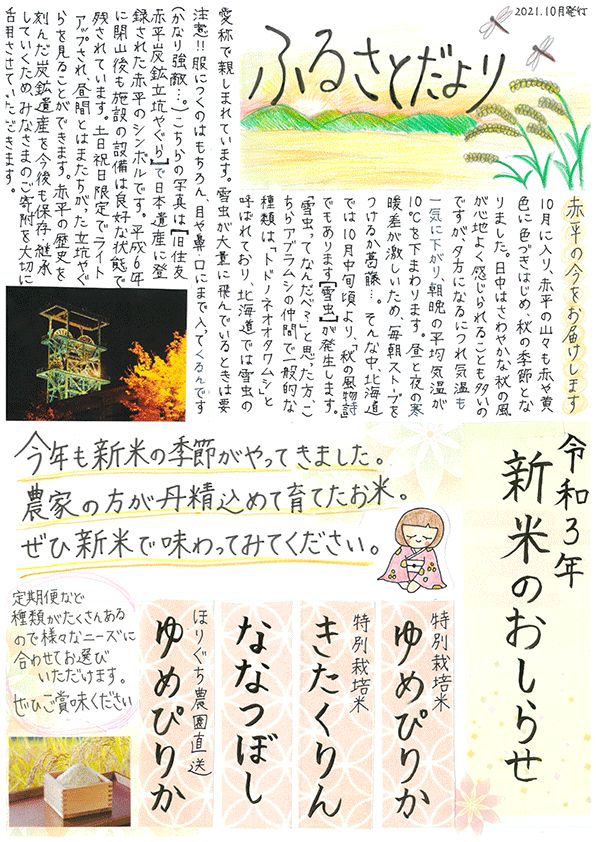 2021.10月発行
ふるさとだより
赤平の今をお届けします
10月に入り、赤平の山々も赤や黄
色に色づきはじめ、秋の季節とな
りました。日中はさわやかな秋の風
が心地よく感じられることも多いの
ですが夕方になるにつれ気温も
一気に下がり、朝晩の平均気温が
10℃を下まわります。昼と夜の寒
暖差が激しいため、毎朝ストーブを
つけるか葛藤…。そんな中、北海道
では10月中旬頃より、「秋の風物詩」
でもあります【雪虫】が発生します。
「雪虫ってなんだべ？」と思った方、こ
ちらアブラムシの仲間で一般的な
種類は、「トドノネオオワタムシ」と
呼ばれており、北海道では雪虫の
愛称で親しまれています。雪虫が大量に飛んでいるときは要
注意!!服につくのはもちろん、目や鼻・口にまで入ってくるんです
(かなり強敵…。)こちらの写真は【旧住友
赤平炭鉱立坑やぐら】で日本遺産に登
録された赤平のシンボルです。平成6年
に閉山後も施設の設備は良好な状態で
残されています。土日祝日限定でライト
アップされ、昼間とはまたちがった立坑やぐ
らを見ることができます。赤平の歴史を
刻んだ炭鉱遺産を今後も保存・継承
していくため、みなさまのご寄附を大切に
活用させていただきます。
令和3年
新米のおしらせ
今年も新米の季節がやってきました。
農家の方が丹精込めて育てたお米。
ぜひ新米で味わってみてください。
特別栽培米
ゆめぴりか
特別栽培米
きたくりん
ななつぼし
ほりぐち農園直送
ゆめぴりか
定期便など
種類がたくさんある
ので様々なニーズに
合わせてお選び
いただけます。
ぜひご賞味ください